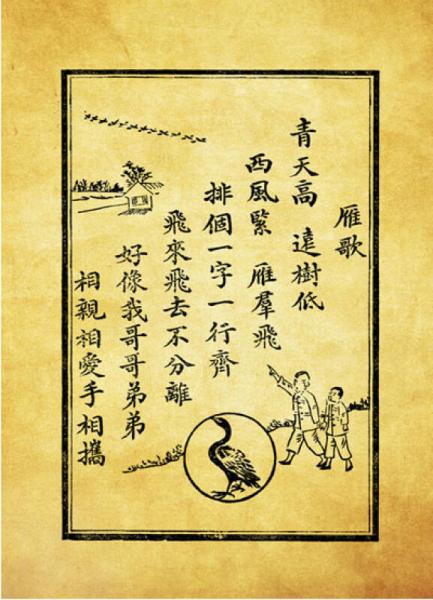 雁歌
青天高 遠樹低
西風緊 雁羣飛
排個一字一行齊
飛來飛去不分離
好像我哥哥弟弟
相親相愛手相攜